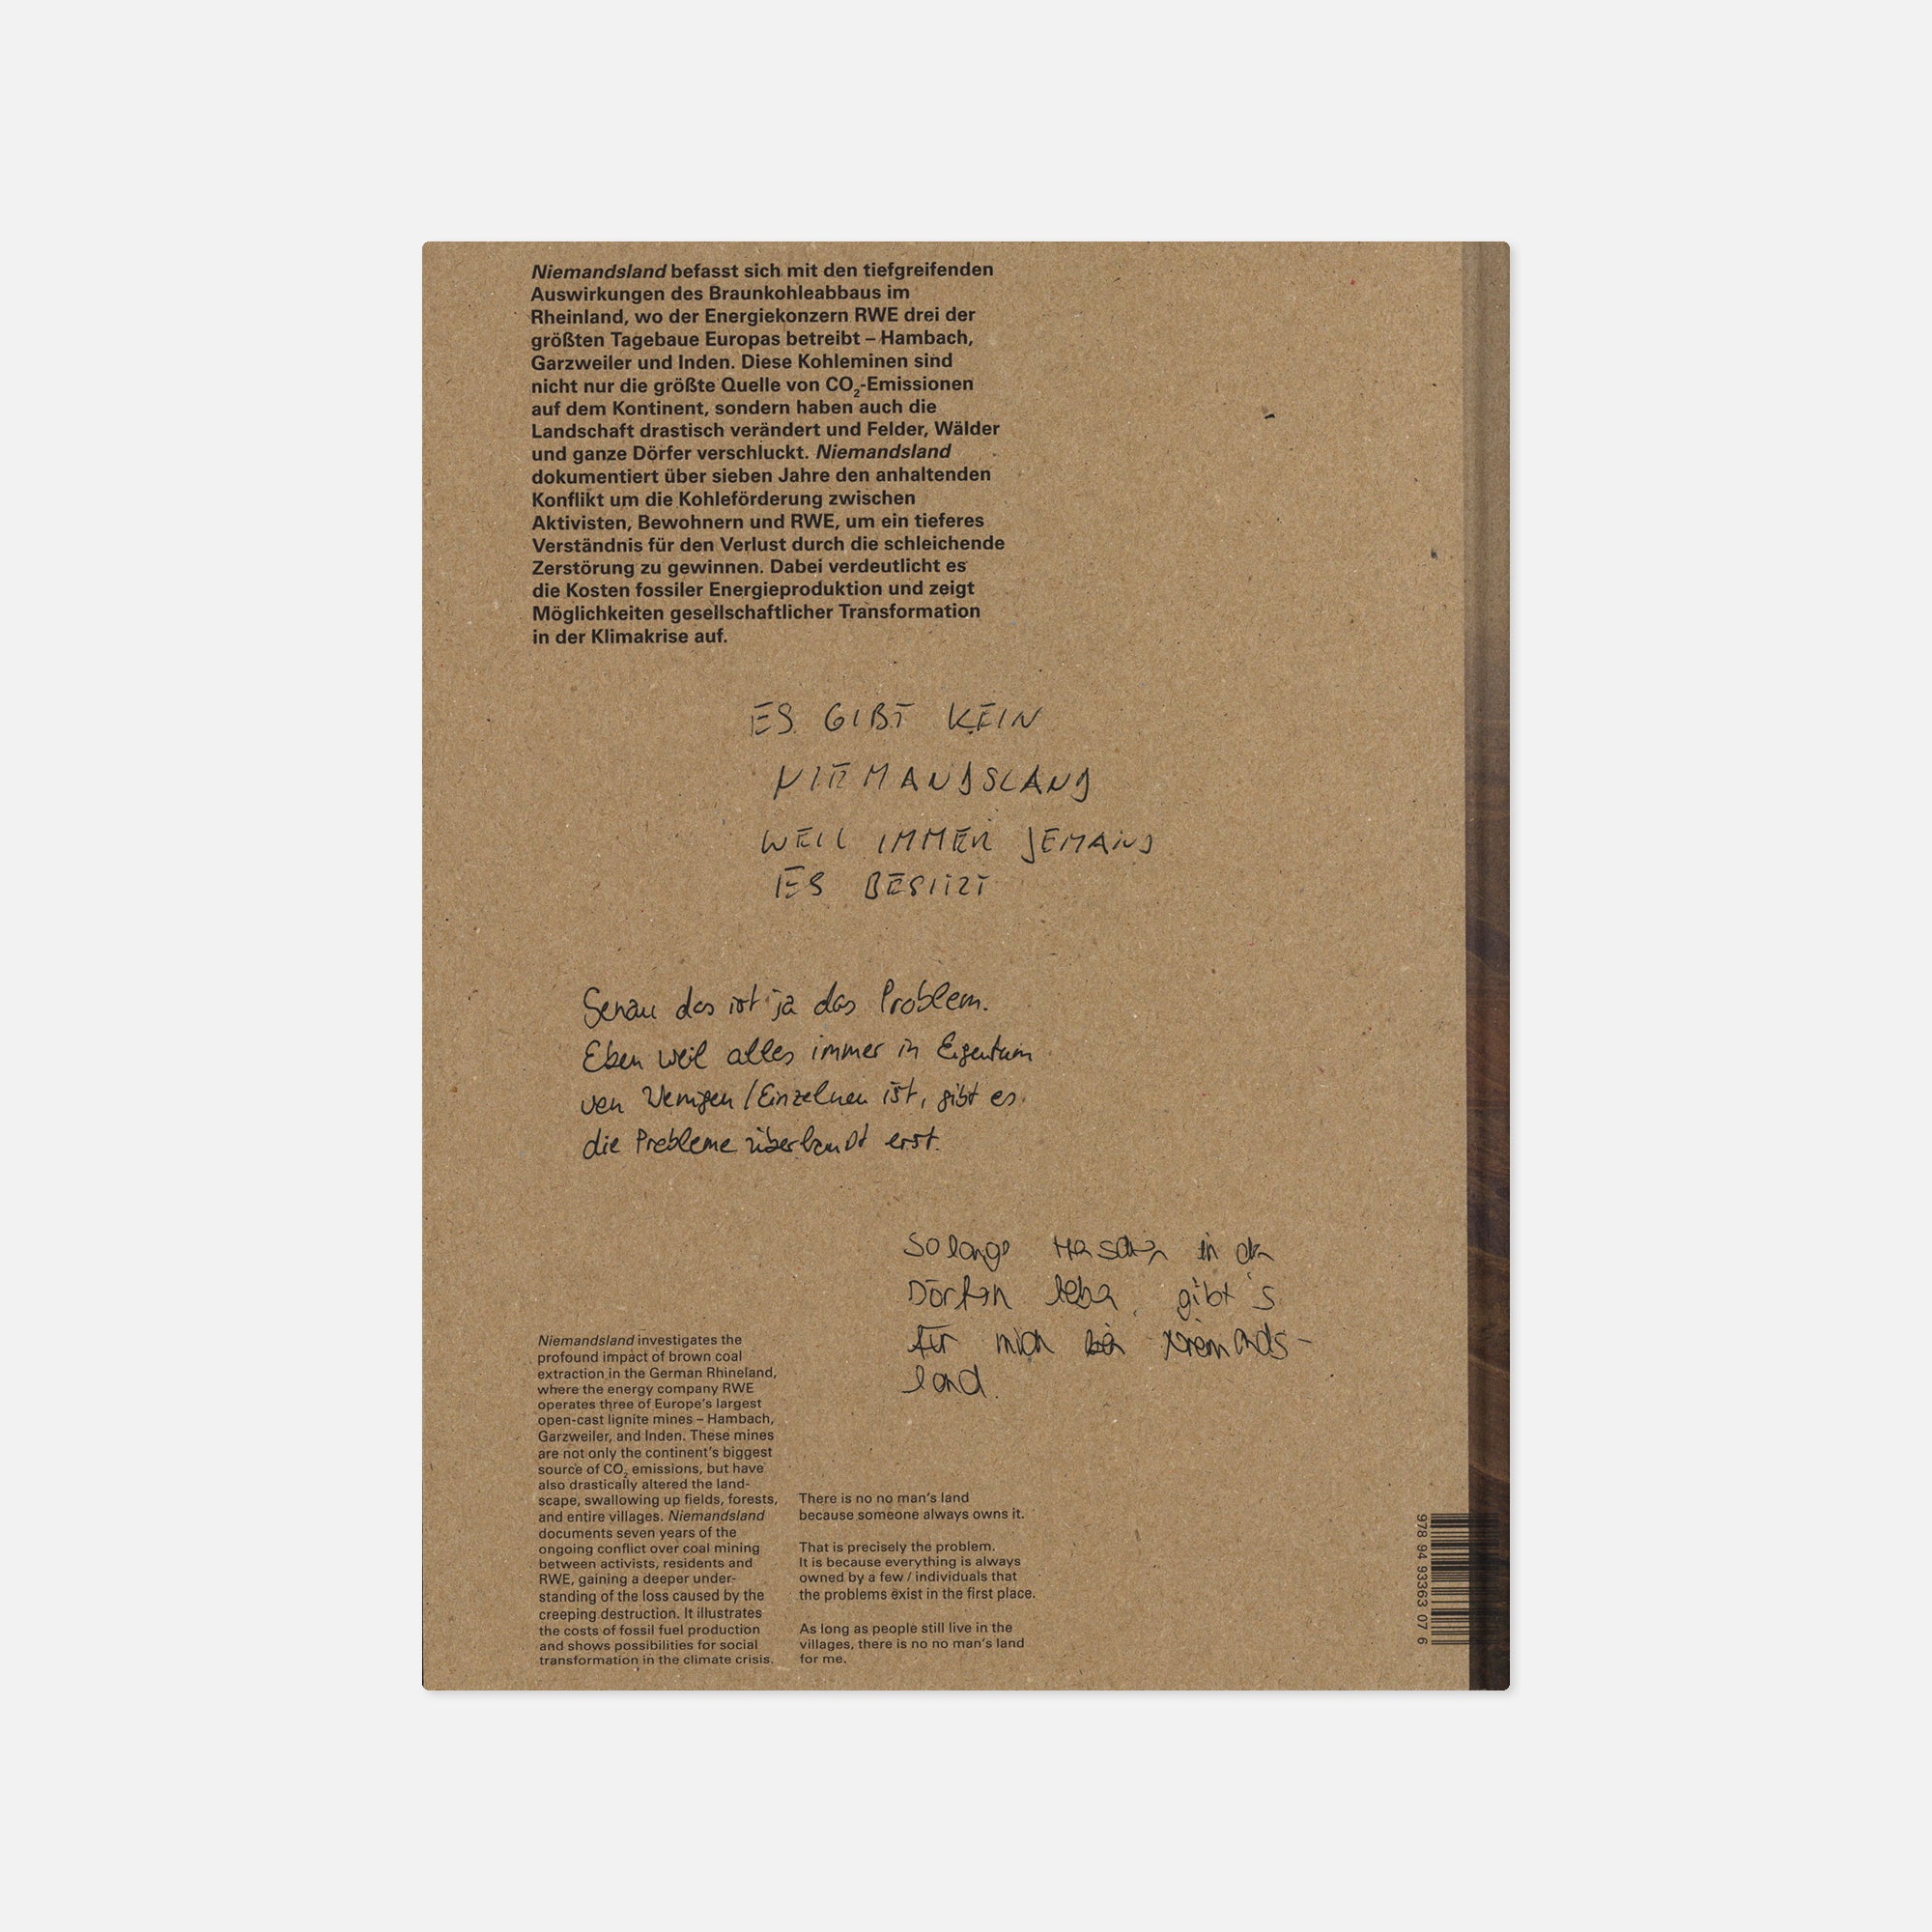 Niemandsland befasst sich mit den tiefgreifenden
Auswirkungen des Braunkohleabbaus im
Rheinland, wo der Energiekonzern RWE drei der
größten Tagebaue Europas betreibt – Hambach,
Garzweiler und Inden. Diese Kohleminen sind
nicht nur die größte Quelle von CO₂-Emissionen
auf dem Kontinent, sondern haben auch die
Landschaft drastisch verändert und Felder, Wälder
und ganze Dörfer verschluckt. Niemandsland
dokumentiert über sieben Jahre den anhaltenden
Konflikt um die Kohleförderung zwischen
Aktivisten, Bewohnern und RWE, um ein tieferes
Verständnis für den Verlust durch die schleichende
Zerstörung zu gewinnen. Dabei verdeutlicht es
die Kosten fossiler Energieproduktion und zeigt
Möglichkeiten gesellschaftlicher Transformation
in der Klimakrise auf.
ES GIBT KEIN
NIEMANDSLAND
WEIL IMMER JEMAND
ES BESITZT
Genau das ist ja das Problem.
Eben weil alles immer in Eigentum
von Wenigen / Einzelnen ist, gibt es
die Probleme überhaupt erst.
Solange Menschen in den
Dörfern leben, gibt's
für mich kein Niemands-
land.
Niemandsland investigates the
profound impact of brown coal
extraction in the German Rhineland,
where the energy company RWE
operates three of Europe's largest
open-cast lignite mines – Hambach,
Garzweiler, and Inden. These mines
are not only the continent's biggest
source of CO₂ emissions, but have
also drastically altered the land-
scape, swallowing up fields, forests,
and entire villages. Niemandsland
documents seven years of the
ongoing conflict over coal mining
between activists, residents and
RWE, gaining a deeper under-
standing of the loss caused by the
creeping destruction. It illustrates
the costs of fossil fuel production
and shows possibilities for social
transformation in the climate crisis.
There is no no man's land
because someone always owns it.
That is precisely the problem.
It is because everything is always
owned by a few / individuals that
the problems exist in the first place.
As long as people still live in the
villages, there is no no man's land
for me.
978 94 93363 07 6